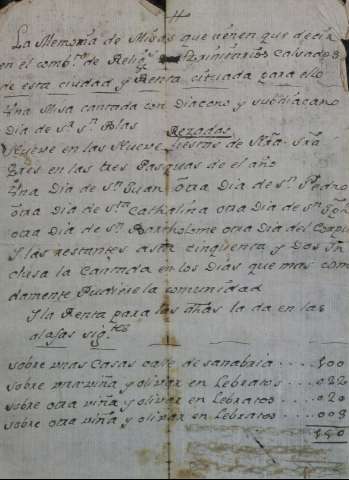 La Memoria de Misas que tienen que decir
en el comb.to de Relig.s Trinitarios Calsados
de esta ciudad y Renta cituada para ello
Una Misa cantada con Diacono y subdiacano
Dia de S.r S.n Blas Rezadas
Nueve en las Nueve fiestas de Ntra. Sra
tres en las tres Pasquas de el año
Una Dia de S.n Juan, otra Dia de S.n Pedro
otra Dia de S.ta Cathalina otra Dia de S.n
otra Dia de S.n Bartholome otra Dia del Corpus
Y las restantes asta cinquenta y Dos In
clusa la Cantada en los Dias que mas como
damente Pudiere la comunidad
Y la Renta para las la da en las
alajas sig.tes
sobre unas Casas calle de sanabria .... 100
sobre una viña y olivar en Lebratos .... 022
sobre otra viña y olivar en Lebratos .... 020
sobre otra viña y olivar en Lebratos .... 008
150